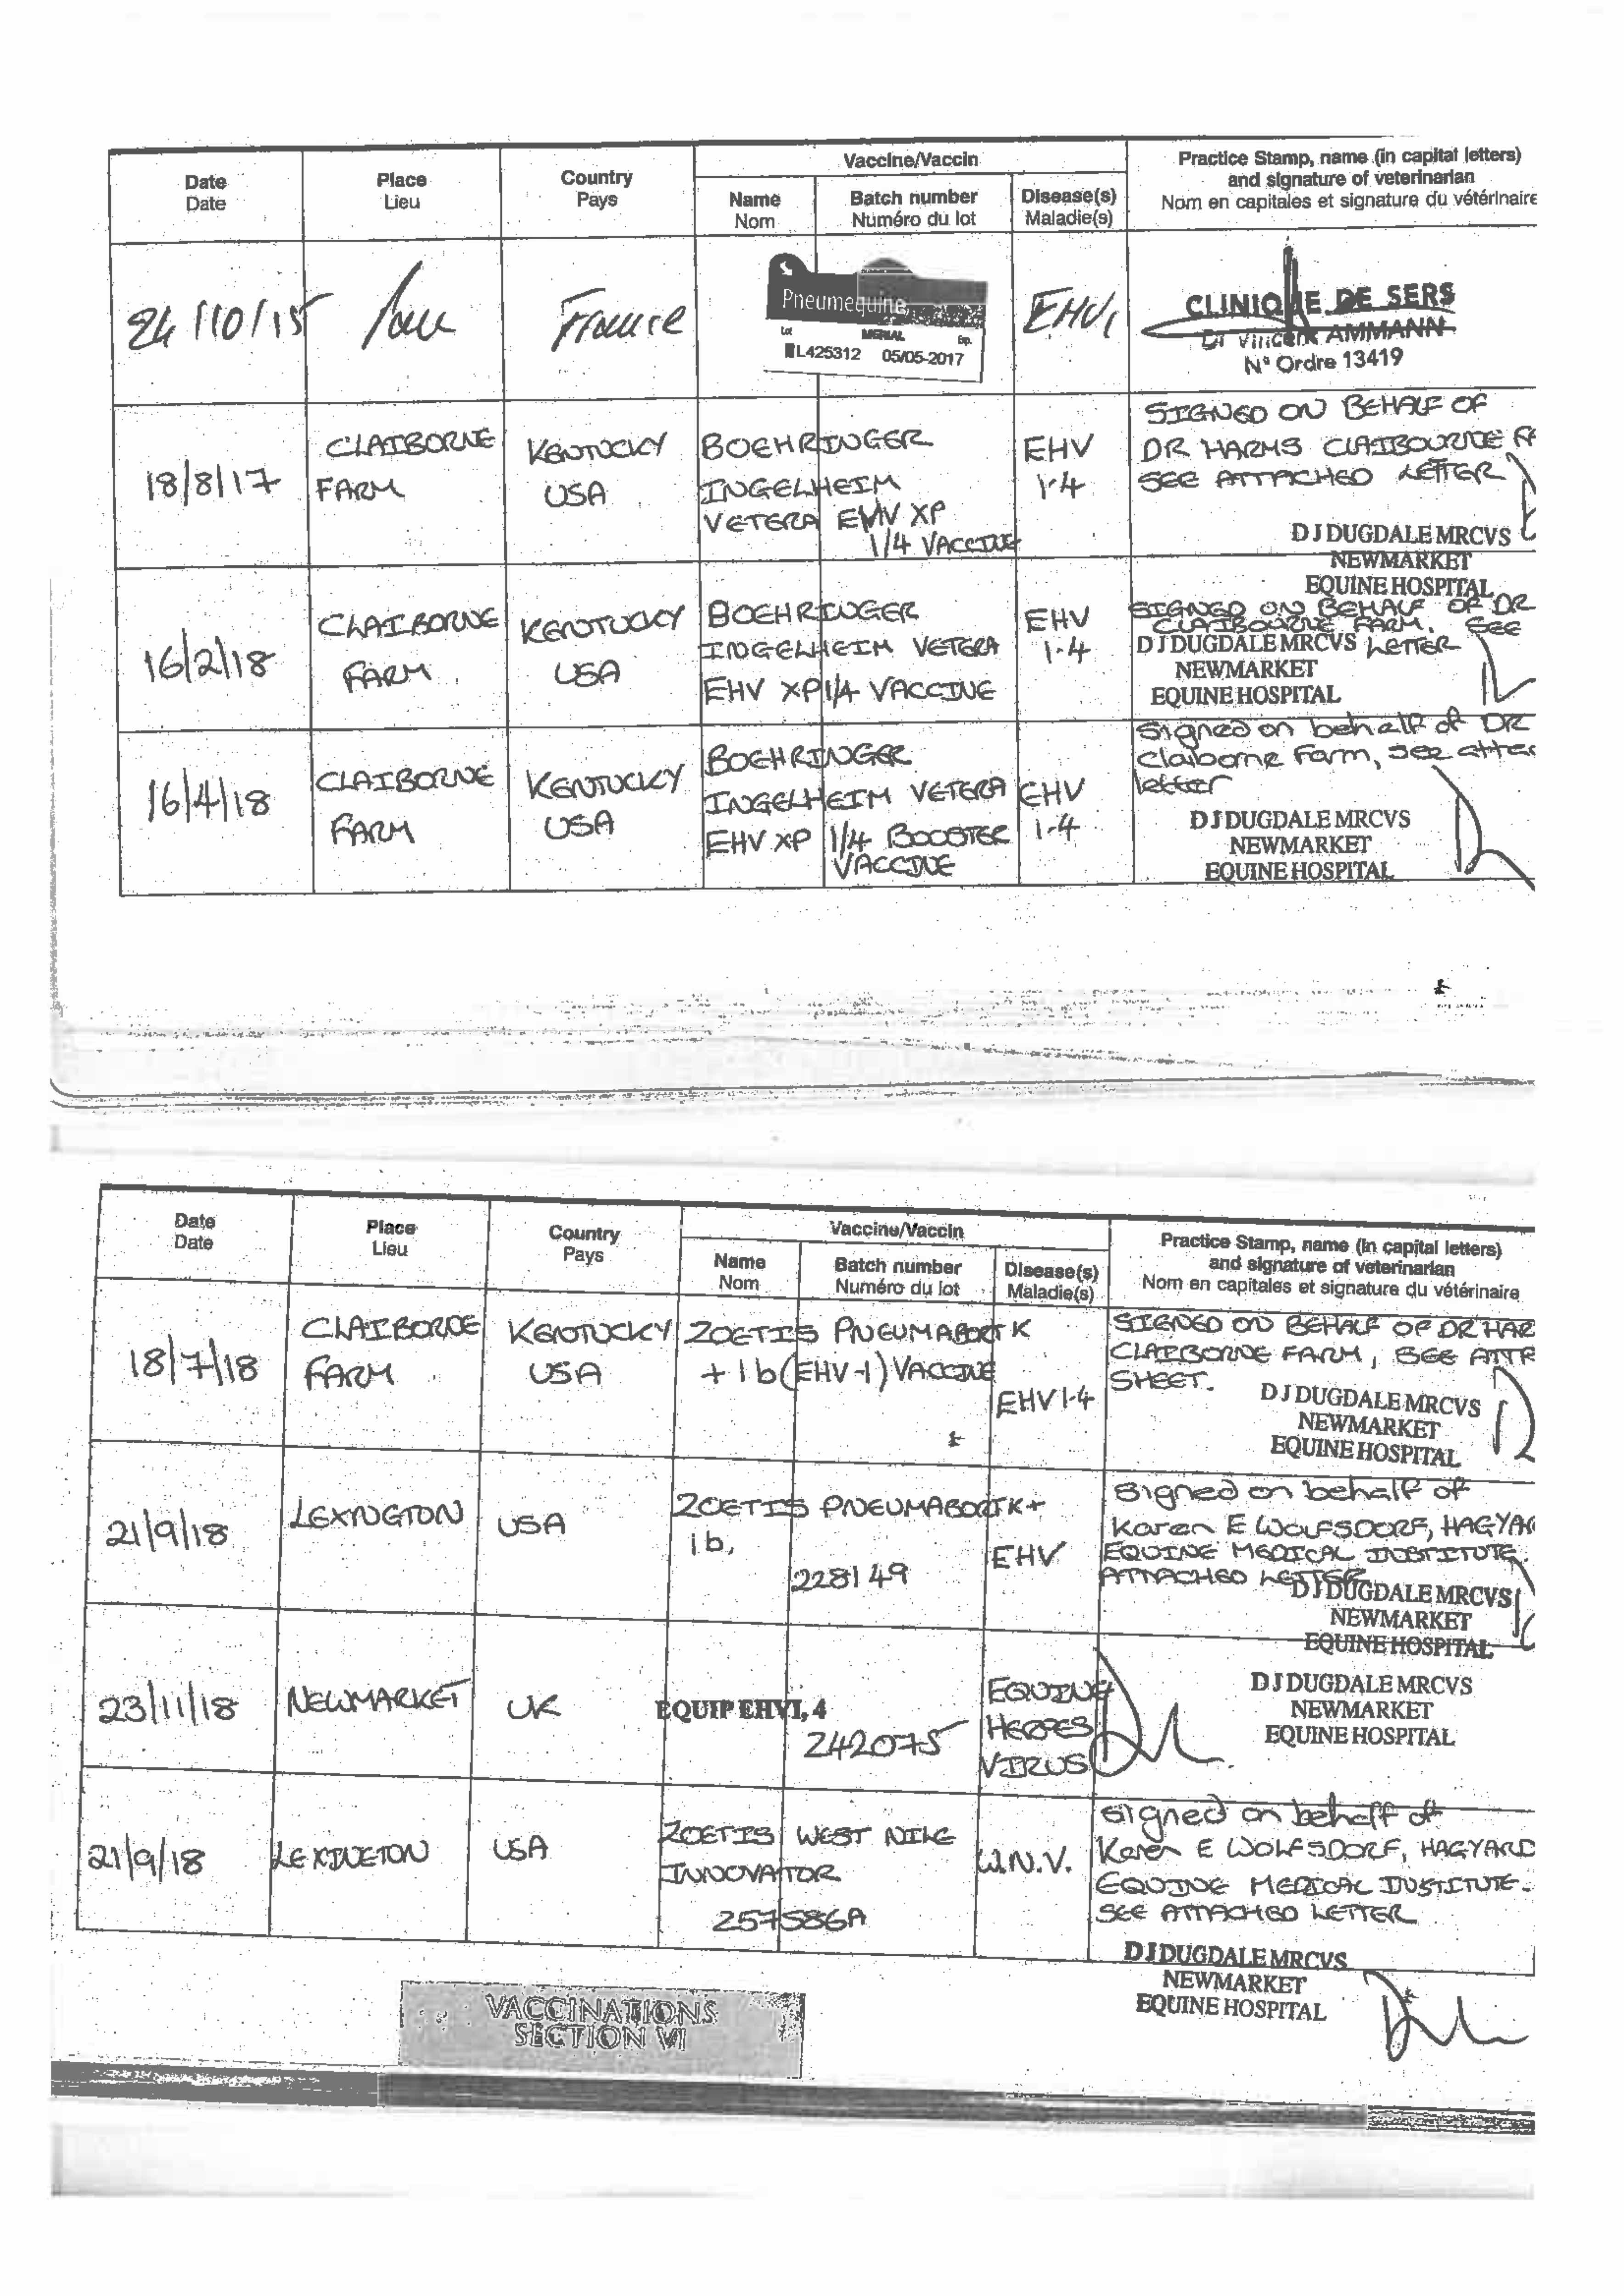 Date
Date
Place
Lieu
Country
Pays
Vaccine/Vaccin
Name
Nom
Batch number
Numéro du lot
Disease(s)
Maladie(s)
Practice Stamp, name (in capital letters)
and signature of veterinarian
Nom en capitales et signature du vétérinaire
24/10/15
France
Pneumequine
Lot
MERIAL
Exp.
L425312 05/05-2017
EHV1
CLINIQUE DE SERS
Dr Vincent AMMANN
N° Ordre 13419
18/8/17
CLAIBORNE
FARM
KENTUCKY
USA
BOEHRINGER
INGELHEIM
VETERA EHV XP
1/4 VACCINE
EHV
1-4
SIGNED ON BEHALF OF
DR HARMS CLAIBOURNE FA
SEE ATTACHED LETTER
D J DUGDALE MRCVS
NEWMARKET
EQUINE HOSPITAL
16/2/18
CLAIBORNE
FARM
KENTUCKY
USA
BOEHRINGER
INGELHEIM VETERA
EHV XP 1/4 VACCINE
EHV
1-4
SIGNED ON BEHALF OF DR
CLAIBOURNE FARM. SEE
D J DUGDALE MRCVS LETTER
NEWMARKET
EQUINE HOSPITAL
16/4/18
CLAIBORNE
FARM
KENTUCKY
USA
BOEHRINGER
INGELHEIM VETERA
EHV XP 1/4 BOOSTER
VACCINE
EHV
1-4
Signed on behalf of DR
Claiborne Farm, see attac
letter
D J DUGDALE MRCVS
NEWMARKET
EQUINE HOSPITAL
Date
Date
Place
Lieu
Country
Pays
Vaccine/Vaccin
Name
Nom
Batch number
Numéro du lot
Disease(s)
Maladie(s)
Practice Stamp, name (in capital letters)
and signature of veterinarian
Nom en capitales et signature du vétérinaire
18/7/18
CLAIBORNE
FARM
KENTUCKY
USA
ZOETIS PNEUMABORT K
+ 1b (EHV-1) VACCINE
EHV 1-4
SIGNED ON BEHALF OF DR HAR
CLAIBORNE FARM, SEE ATTA
SHEET.
D J DUGDALE MRCVS
NEWMARKET
EQUINE HOSPITAL
21/9/18
LEXINGTON
USA
ZOETIS PNEUMABORT K+
1b,
228149
EHV
Signed on behalf of
Karen E WOLFSDORF, HAGYAR
EQUINE MEDICAL INSTITUTE.
ATTACHED LETTER
D J DUGDALE MRCVS
NEWMARKET
EQUINE HOSPITAL
23/11/18
NEWMARKET
UK
EQUIP EHV1,4
242075
EQUINE
HERPES
VIRUS
D J DUGDALE MRCVS
NEWMARKET
EQUINE HOSPITAL
21/9/18
LEXINGTON
USA
ZOETIS WEST NILE
INNOVATOR
257586A
W.N.V.
Signed on behalf of
Karen E WOLFSDORF, HAGYARD
EQUINE MEDICAL INSTITUTE.
SEE ATTACHED LETTER
D J DUGDALE MRCVS
NEWMARKET
EQUINE HOSPITAL
VACCINATIONS
SECTION VI